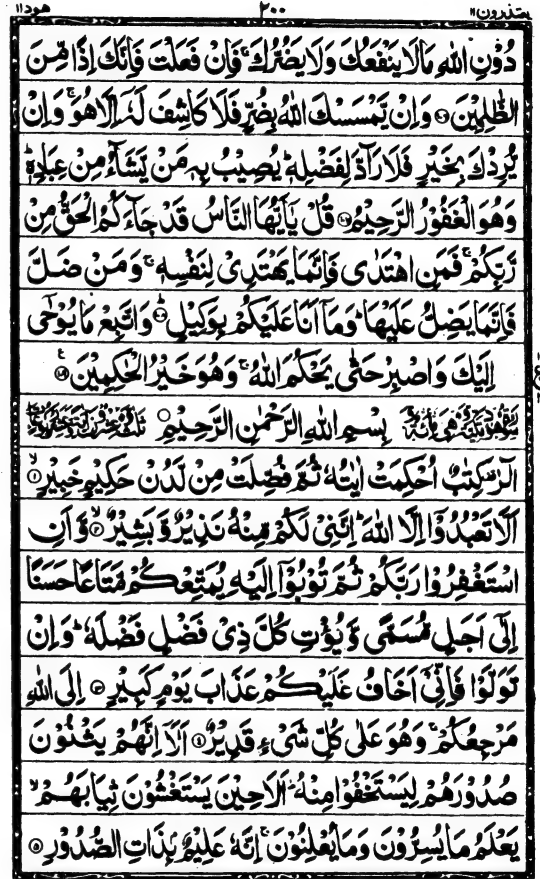 يعتذرون ١١ ٢٠٠ هود ١١
دُوْنِ اللّٰهِ مَا لَا يَنْفَعُكَ وَلَا يَضُرُّكَ ۚ فَاِنْ فَعَلْتَ فَاِنَّكَ اِذًا مِّنَ
الظّٰلِمِيْنَ ۝١٠٦ وَاِنْ يَّمْسَسْكَ اللّٰهُ بِضُرٍّ فَلَا كَاشِفَ لَهٗۤ اِلَّا هُوَ ۚ وَاِنْ
يُّرِدْكَ بِخَيْرٍ فَلَا رَآدَّ لِفَضْلِهٖ ؕ يُصِيْبُ بِهٖ مَنْ يَّشَآءُ مِنْ عِبَادِهٖ ؕ
وَهُوَ الْغَفُوْرُ الرَّحِيْمُ ۝١٠٧ قُلْ يٰۤاَيُّهَا النَّاسُ قَدْ جَآءَكُمُ الْحَقُّ مِنْ
رَّبِّكُمْ ۚ فَمَنِ اهْتَدٰى فَاِنَّمَا يَهْتَدِىْ لِنَفْسِهٖ ۚ وَمَنْ ضَلَّ
فَاِنَّمَا يَضِلُّ عَلَيْهَا ؕ وَمَاۤ اَنَا عَلَيْكُمْ بِوَكِيْلٍ ۝١٠٨ وَاتَّبِعْ مَا يُوْحٰۤى
اِلَيْكَ وَاصْبِرْ حَتّٰى يَحْكُمَ اللّٰهُ ۚ وَهُوَ خَيْرُ الْحٰكِمِيْنَ ۝١٠٩
بِسْمِ اللّٰهِ الرَّحْمٰنِ الرَّحِيْمِ
الٓرٰ ࣞ كِتٰبٌ اُحْكِمَتْ اٰيٰتُهٗ ثُمَّ فُصِّلَتْ مِنْ لَّدُنْ حَكِيْمٍ خَبِيْرٍ ۝١ۙ
اَلَّا تَعْبُدُوْۤا اِلَّا اللّٰهَ ؕ اِنَّنِىْ لَكُمْ مِّنْهُ نَذِيْرٌ وَّبَشِيْرٌ ۝٢ۙ وَّاَنِ
اسْتَغْفِرُوْا رَبَّكُمْ ثُمَّ تُوْبُوْۤا اِلَيْهِ يُمَتِّعْكُمْ مَّتَاعًا حَسَنًا
اِلٰۤى اَجَلٍ مُّسَمًّى وَّيُؤْتِ كُلَّ ذِىْ فَضْلٍ فَضْلَهٗ ؕ وَاِنْ
تَوَلَّوْا فَاِنِّىْۤ اَخَافُ عَلَيْكُمْ عَذَابَ يَوْمٍ كَبِيْرٍ ۝٣ اِلَى اللّٰهِ
مَرْجِعُكُمْ ۚ وَهُوَ عَلٰى كُلِّ شَىْءٍ قَدِيْرٌ ۝٤ اَلَاۤ اِنَّهُمْ يَثْنُوْنَ
صُدُوْرَهُمْ لِيَسْتَخْفُوْا مِنْهُ ؕ اَلَا حِيْنَ يَسْتَغْشُوْنَ ثِيَابَهُمْ ۙ
يَعْلَمُ مَا يُسِرُّوْنَ وَمَا يُعْلِنُوْنَ ۚ اِنَّهٗ عَلِيْمٌۢ بِذَاتِ الصُّدُوْرِ ۝٥